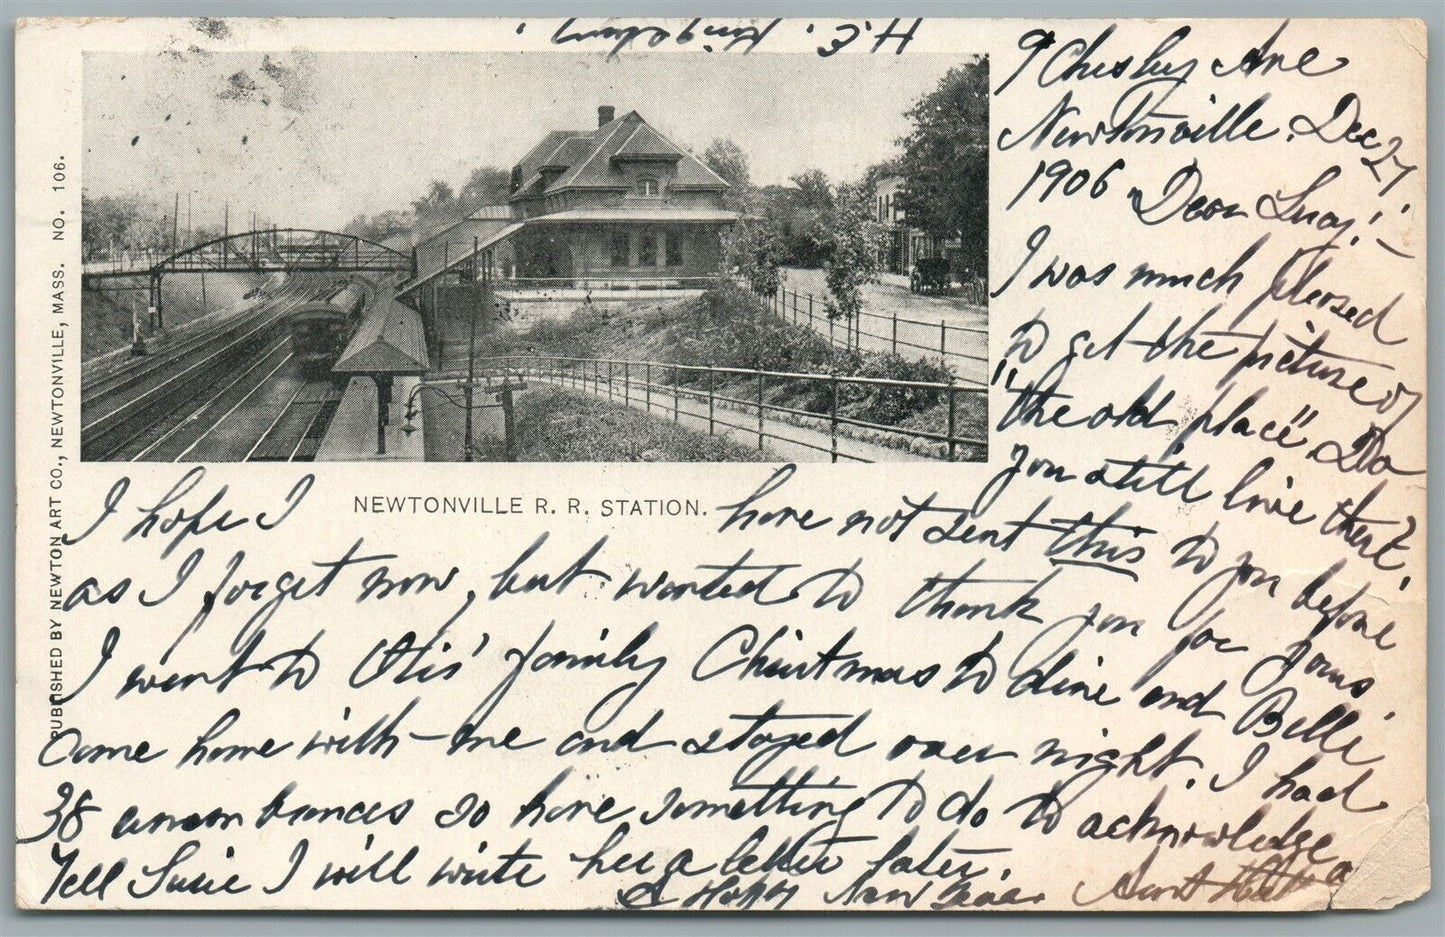 9 Chesley Ave
Newtonville. Dec 27,
1906 Dear Lucy! -
I was much pleased
to get the picture of
"the old place". Do
you still live there?
I hope I have not sent this to you before
as I forget now, but wanted to thank you for yours.
I went to Otis' family Christmas to dine and Belle
came home with me and stayed over night. I had
38 so have something to do to acknowledge
Tell Susie I will write her a letter later.
A Happy New Year. Aunt
H. E.
NEWTONVILLE R. R. STATION.
PUBLISHED BY NEWTON ART CO., NEWTONVILLE, MASS. NO. 106.